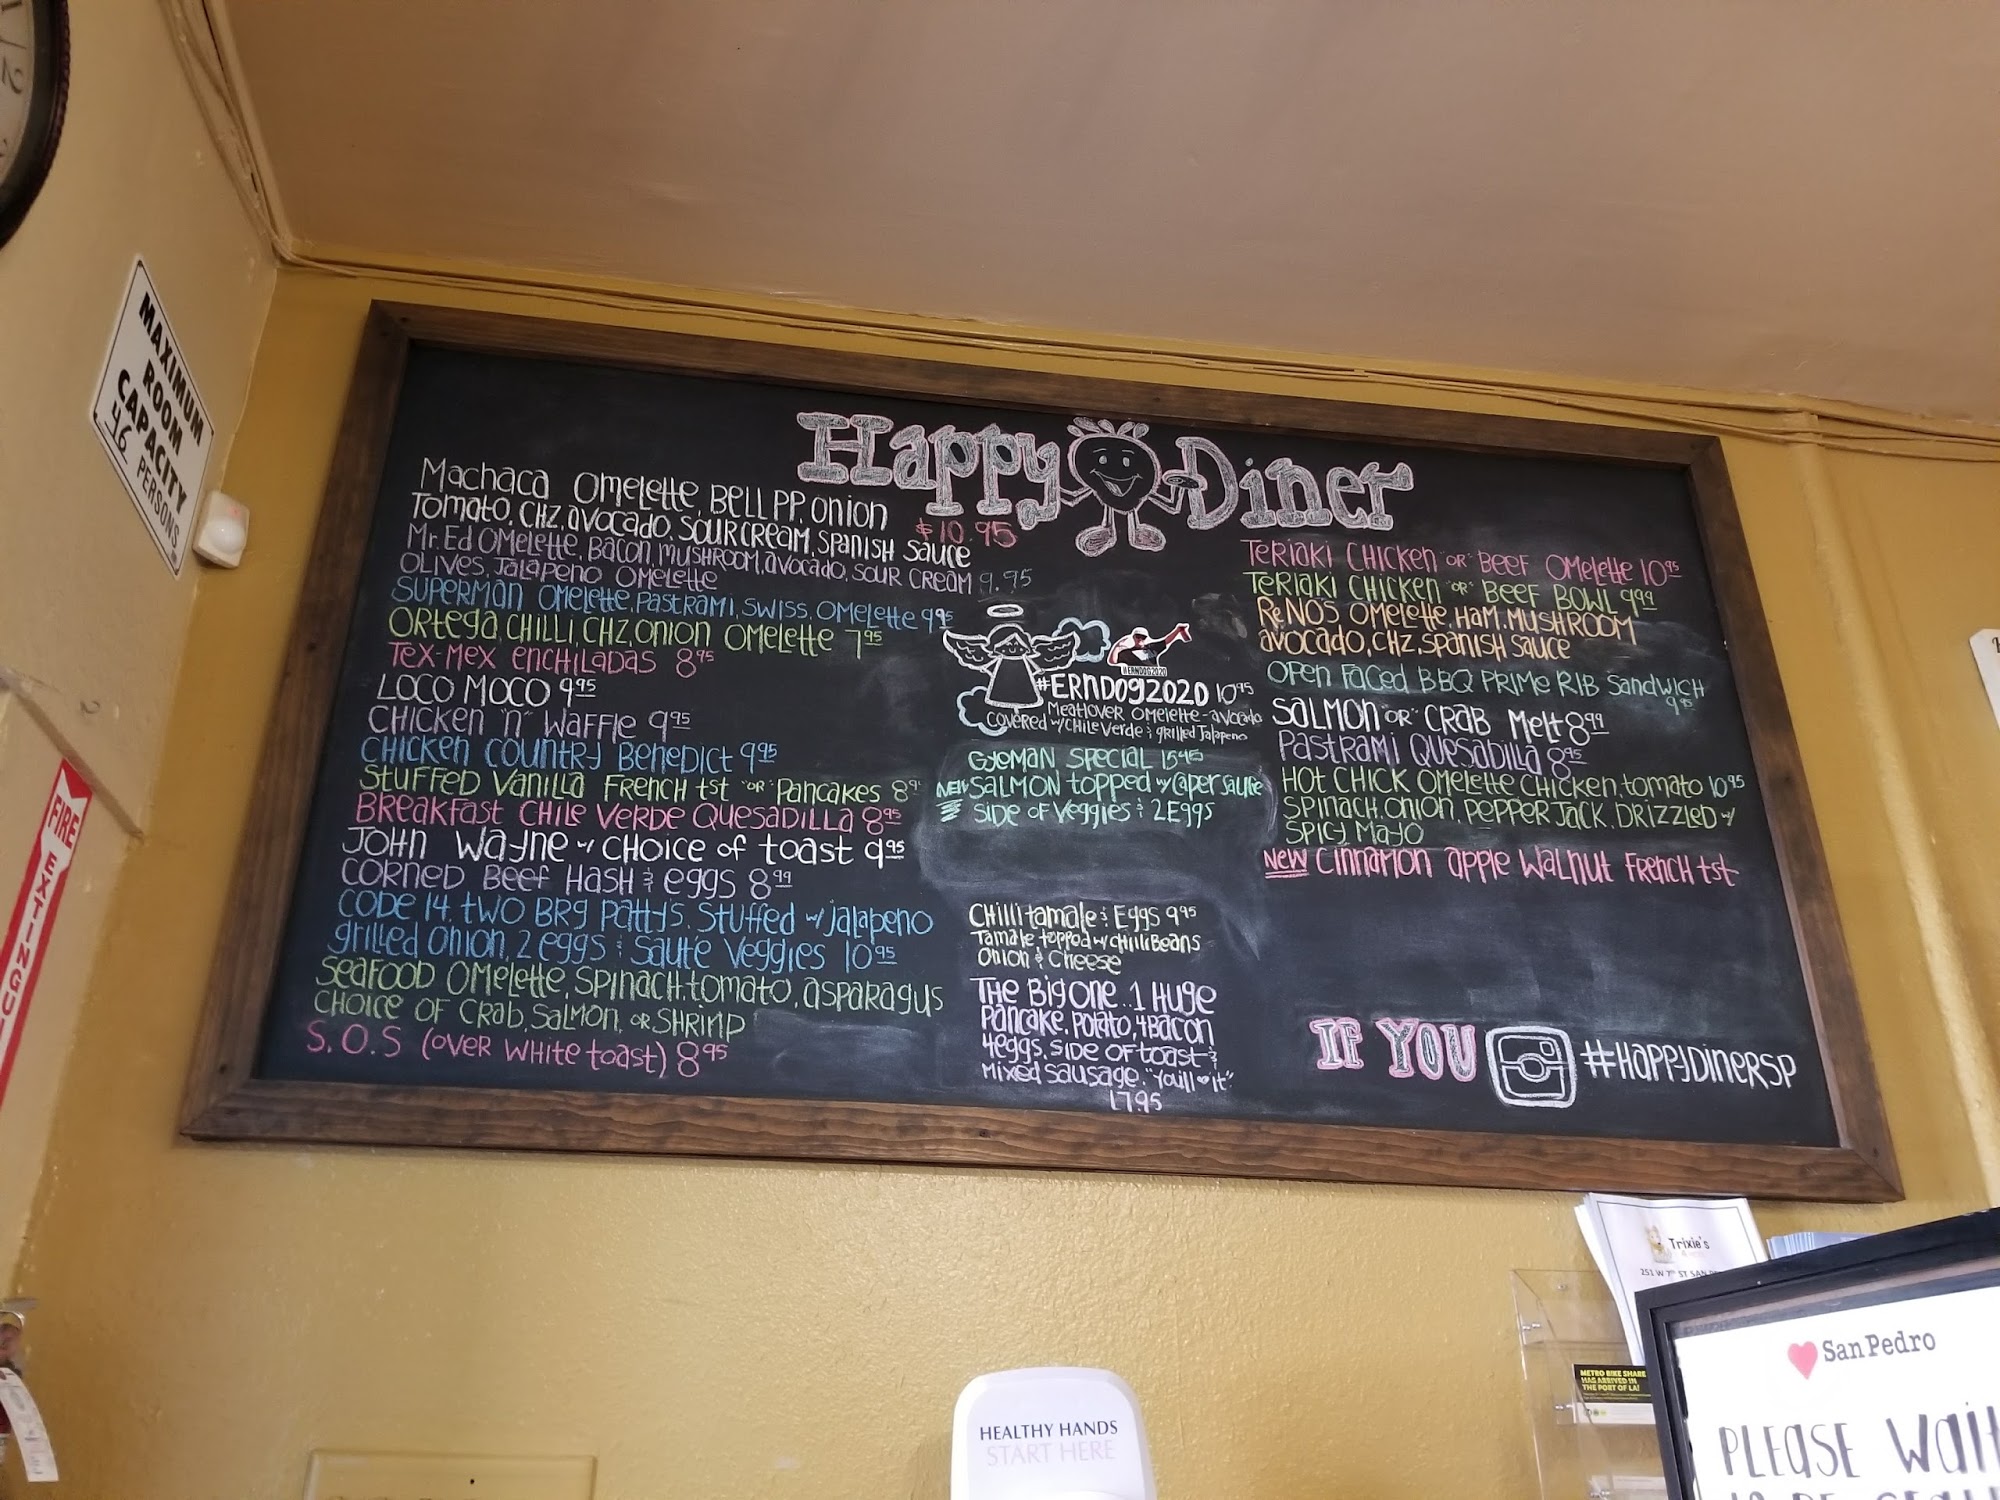 12
MAXIMUM
ROOM
CAPACITY
46 PERSONS
FIRE EXTINGUI
Happy Diner
Machaca Omelette, Bell PP, Onion
Tomato, CHZ, avocado, sour cream, spanish sauce $10.95
Mr. Ed Omelette, Bacon, mushroom, avocado, sour cream
Olives, Jalapeno Omelette 9.95
Superman Omelette, Pastrami, Swiss, Omelette 9.95
Ortega, Chilli, CHZ, Onion Omelette 7.95
Tex-Mex Enchiladas 8.95
Loco Moco 9.95
Chicken "n" Waffle 9.95
Chicken Country Benedict 9.95
Stuffed Vanilla French tst "or" Pancakes 8.9
Breakfast Chile Verde Quesadilla 8.95
John Wayne w/ choice of toast 9.95
Corned Beef Hash & eggs 8.99
Code 14. two BRG Patty's, Stuffed w/ jalapeno
grilled onion, 2 eggs & Sauté Veggies 10.95
Seafood Omelette, Spinach, tomato, asparagus
choice of Crab, Salmon, or Shrimp
S.O.S (over white toast) 8.95
#ERNDOG2020
#ERNDOG2020 10.95
Meatlover Omelette - avocado
covered w/ chile verde & grilled Jalapeno
Special 15.45
NEW Salmon topped w/ Caper sauce
side of Veggies & 2 Eggs
Chilli tamale & Eggs 9.95
Tamale topped w/ chilli Beans
Onion & Cheese
The Big One.. 1 Huge
Pancake, Potato, 4 Bacon
4 eggs, side of toast &
mixed sausage. "you'll ♥ it"
17.95
Teriaki Chicken "or" Beef Omelette 10.95
Teriaki Chicken "or" Beef Bowl 9.99
ReNo's Omelette, Ham, Mushroom
avocado, CHZ, Spanish Sauce
Open Faced BBQ Prime Rib Sandwich
9.95
Salmon "or" Crab Melt 8.99
Pastrami Quesadilla 8.95
Hot Chick Omelette Chicken, tomato 10.95
Spinach, onion, pepper Jack, Drizzled w/
Spicy Mayo
NEW Cinnamon apple Walnut French tst
IF YOU #HappyDinerSP
Trixie's
251 W 7TH ST SAN
METRO BIKE SHARE
HAS ARRIVED IN
THE PORT OF LA!
San Pedro
PLEASE Wait
HEALTHY HANDS
START HERE